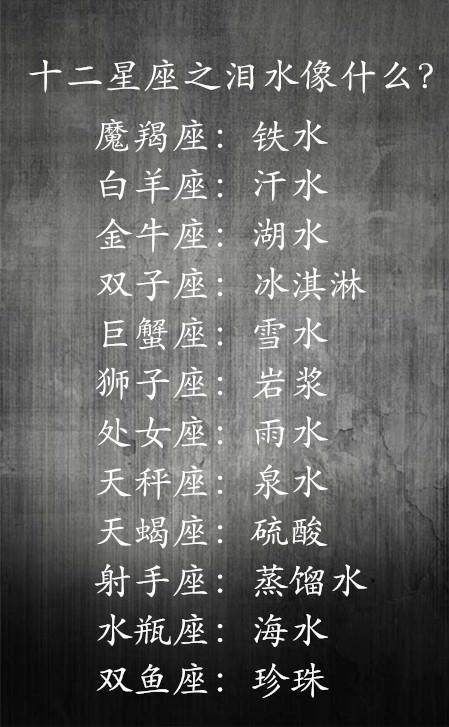 十二星座之泪水像什么?
魔羯座: 铁水
白羊座: 汗水
金牛座: 湖水
双子座: 冰淇淋
巨蟹座: 雪水
狮子座: 岩浆
处女座: 雨水
天秤座: 泉水
天蝎座: 硫酸
射手座: 蒸馏水
水瓶座: 海水
双鱼座: 珍珠